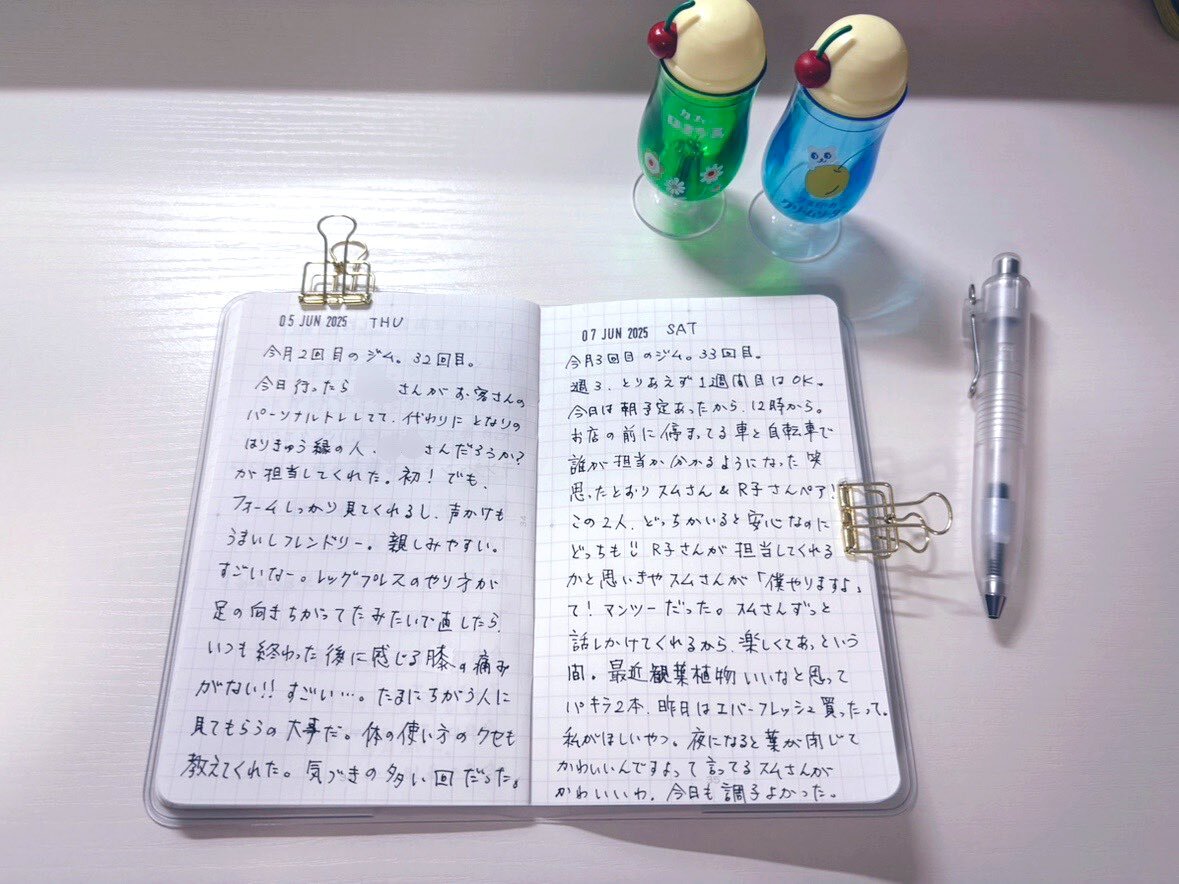 カム
クリームソーダ
05 JUN 2025 THU
今月2回目のジム。32回目。
今日行ったら さんがお客さんの
パーソナルトレしてて、代わりにとなりの
はりきゅう縁の人、 さんだろうか?
が担当してくれた。初!でも、
フォームしっかり見てくれるし、声かけも
うまいしフレンドリー。親しみやすい。
すごいなー。レッグプレスのやり方が
足の向きちがってたみたいで直したら、
いつも終わった後に感じる膝の痛み
がない!!すごい…。たまにちがう人に
見てもらうの大事だ。体の使い方のクセも
教えてくれた。気づきの多い回だった。
07 JUN 2025 SAT
今月3回目のジム。33回目。
週3、とりあえず1週間目はOK。
今日は朝予定あったから、12時から。
お店の前に停まってる車と自転車で
誰が担当か分かるようになった笑
思ったとおりスムさん&R子さんペア!
この2人、どっちかいると安心なのに
どっちも!! R子さんが担当してくれる
かと思いきやスムさんが「僕やりますよ」
て!マンツーだった。スムさんずっと
話しかけてくれるから、楽しくてあっという
間。最近観葉植物いいなと思って
パキラ2本、昨日はエバーフレッシュ買ったって。
私がほしいやつ。夜になると葉が閉じて
かわいいんですよって言ってるスムさんが
かわいいわ。今日も調子よかった。